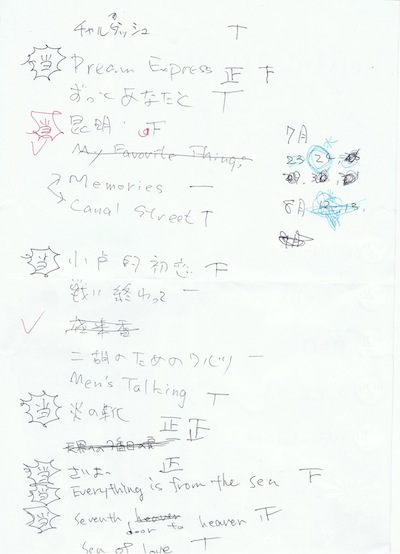 チャルダッシュ 丅
当 Dream Express 正 下
ずっとあなたと 丅
当 昆明 下
My Favorite Things
Memories 一
Canal Street 丅
7月
23 24
8月 12 13
当 小卢的初恋 下
戦い終わって 一
二胡のためのワルツ 一
Men's Talking 丅
当 炎の靴 正 正
当 さいまー 正
当 Everything is from the sea 下
当 Seventh heaven door to heaven 下
Sea of love 丅